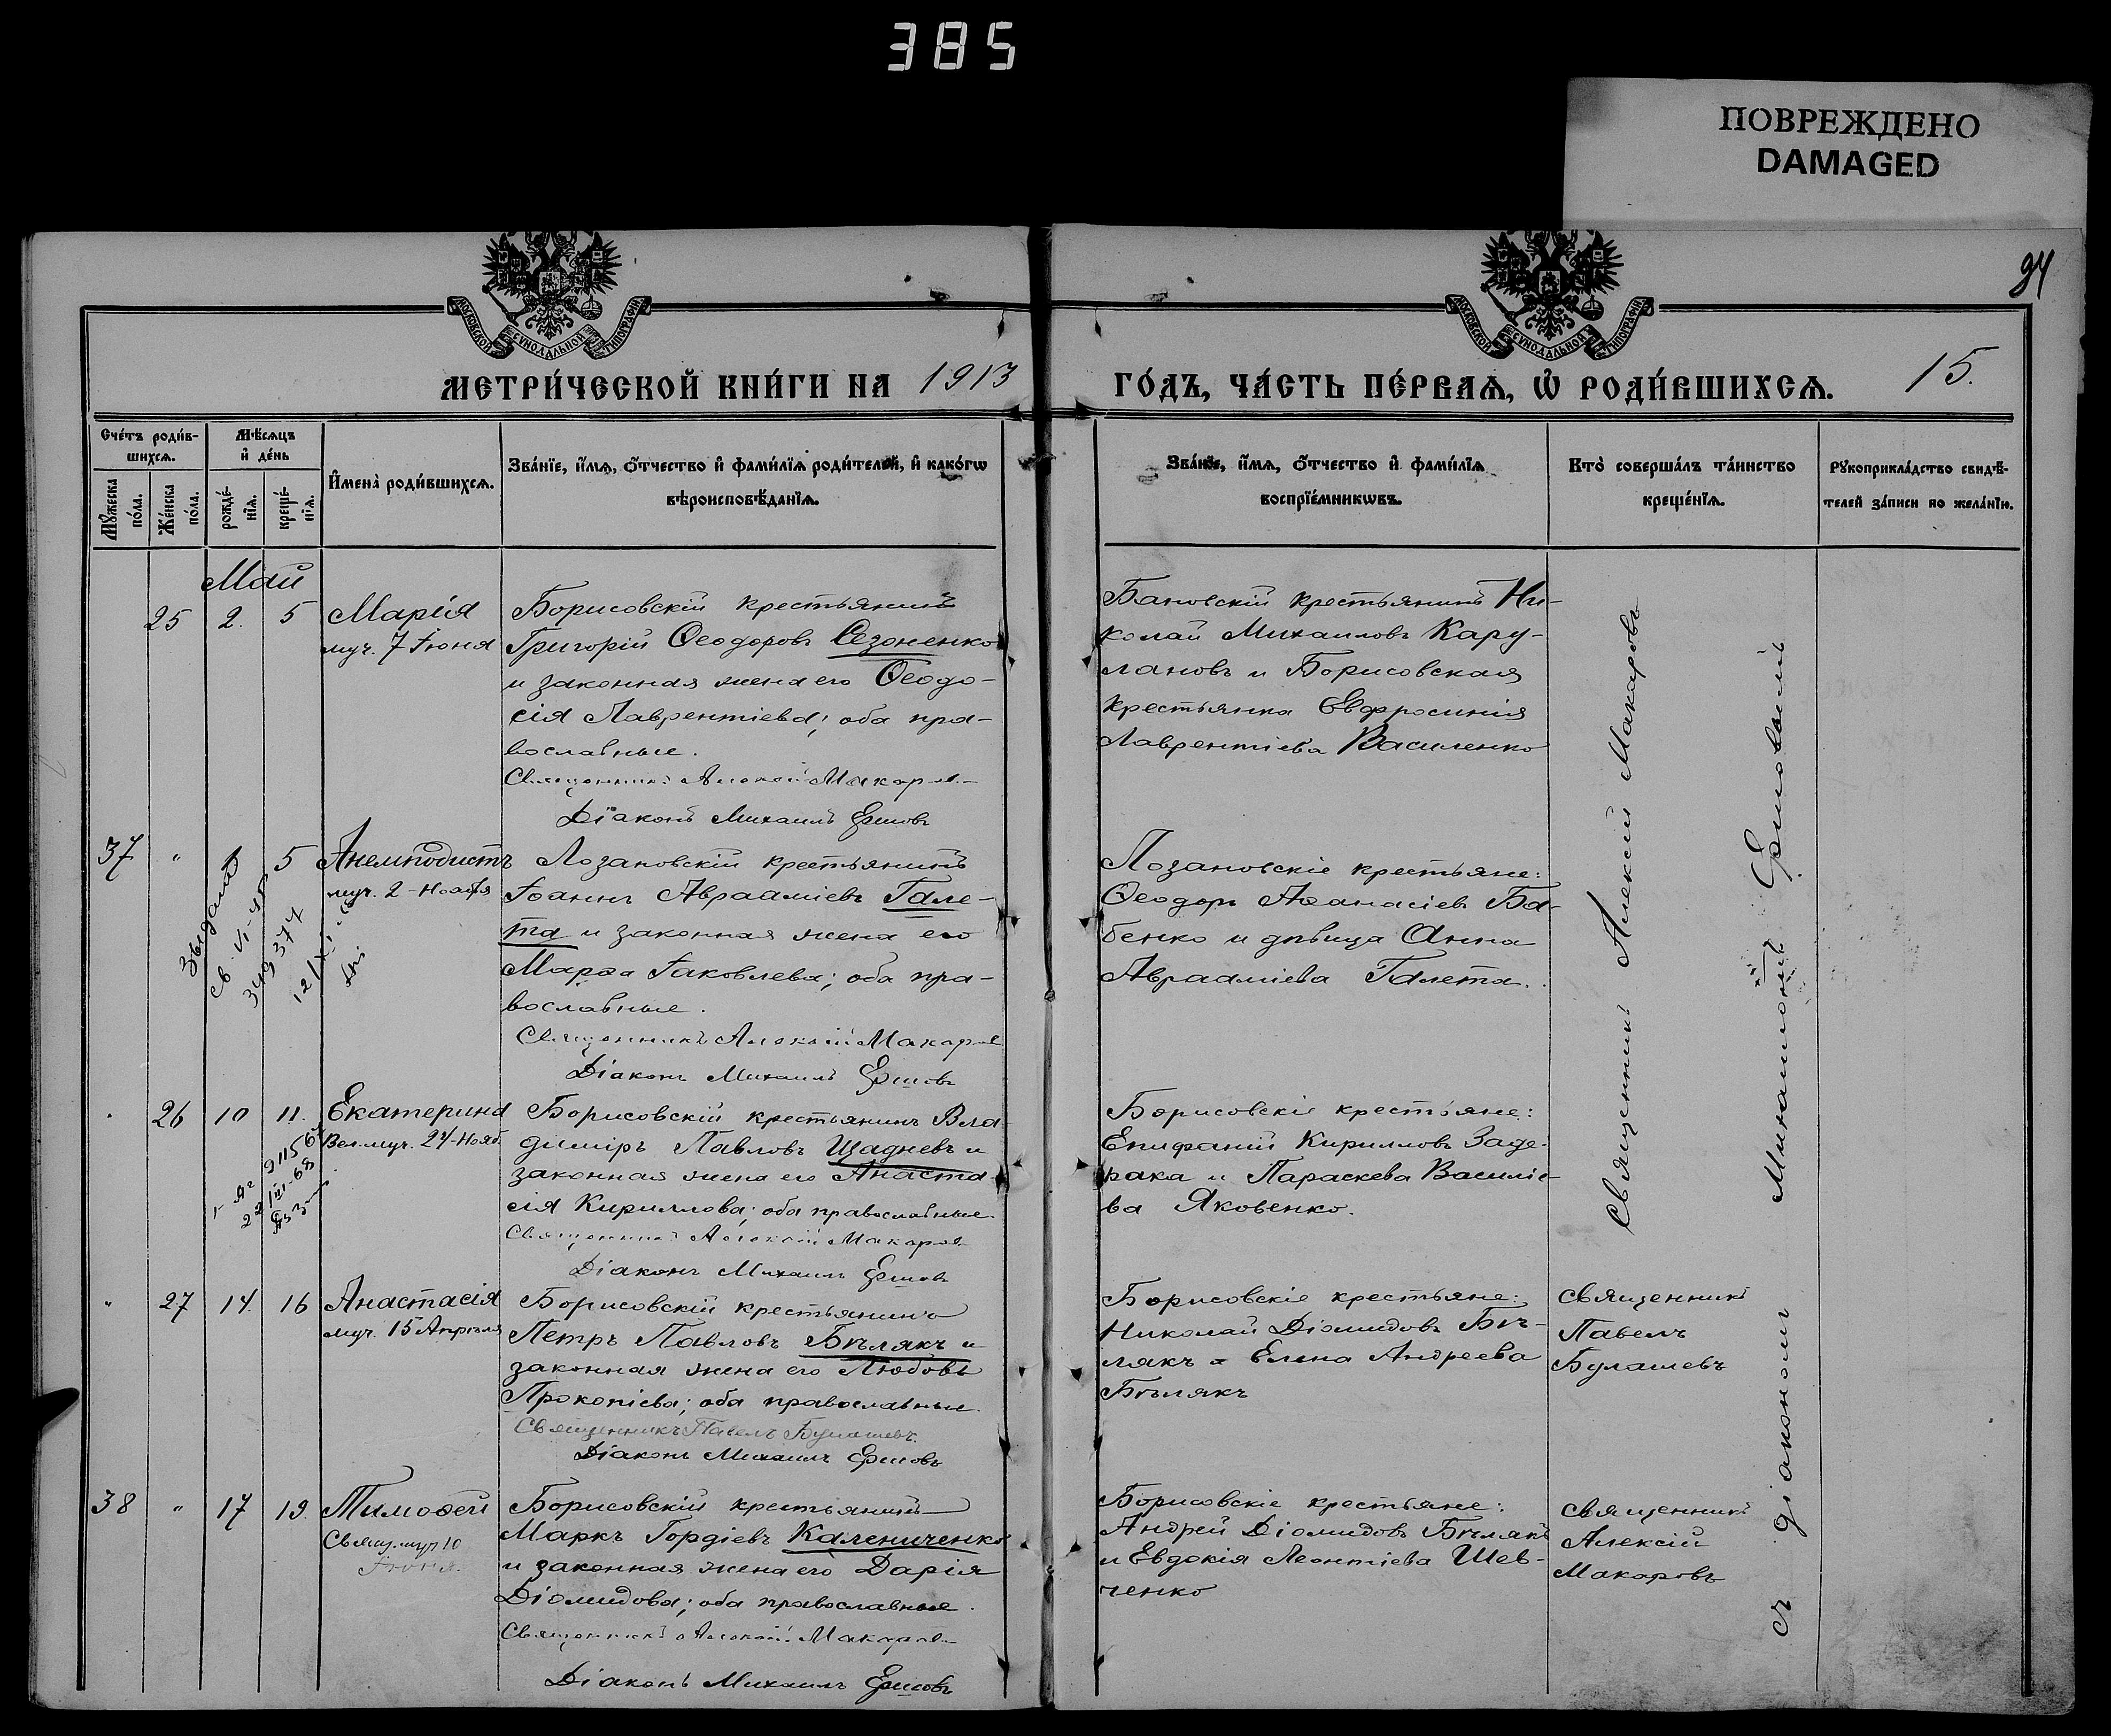 385
ПОВРЕЖДЕНО
DAMAGED
94
МОСКОВСКОЙ СѴНОДАЛЬНОЙ ТИПОГРАФІИ
МОСКОВСКОЙ СѴНОДАЛЬНОЙ ТИПОГРАФІИ
МЕТРИ́ЧЕСКОЙ КНИ́ГИ НА 1913
ГО́ДЪ, ЧА́СТЬ ПЕ́РВАѦ, Ѡ҆ РОДИ́ВШИХСѦ. 15.
Сче́тъ роди́в-
шихсѧ.
Мѣ́сѧцъ
и҆ де́нь
Мꙋ́жеска
по́ла.
Же́нска
по́ла.
рожде́-
нїѧ.
креще́-
нїѧ.
И҆мена̀ роди́вшихсѧ.
Зва́нїе, и҆́мѧ, ѻ҆́тчество и҆ фами́лїѧ роди́телей, и҆ како́гѡ
вѣроисповѣ́данїѧ.
Зва́нїе, и҆́мѧ, ѻ҆́тчество и҆ фами́лїѧ
воспрїе́мникѡвъ.
Кто̀ соверша́лъ та́инство
креще́нїѧ.
Рꙋкоприкла́дство свидѣ́-
телей за́писи по жела́нїю.
Май
25 2. 5 Марія
муч. 7 Іюня
Борисовскій крестьянинъ
Григорій Ѳеодоровъ Сезоненко
и законная жена его Ѳеодо-
сія Лаврентіева; оба пра-
вославные.
Священникъ Алексій Макаровъ
Діаконъ Михаилъ Ершовъ
Бановскій крестьянинъ Ни-
колай Михаиловъ Кару-
лановъ и Борисовская
крестьянка Евфросинія
Лаврентіева Василенко
37 " 1 5 Анемподистъ
муч. 2 Ноября
Лозановскій крестьянинъ
Іоаннъ Авраамiевъ Гале-
та и законная жена его
Марѳа Іаковлева; оба пра-
вославные.
Священникъ Алексій Макаровъ
Діаконъ Михаилъ Ершовъ
Лозановскіе крестьяне:
Ѳеодоръ Аѳанасіевъ Ба-
бенко и дѣвица Анна
Авраамiева Галета.
св. VI-
349374
12/XI
26 10 11. Екатерина
Вел. муч. 24 Нояб.
Борисовскій крестьянинъ Вла-
димiръ Павловъ Щадневъ и
законная жена его Анаста-
сія Кириллова; оба православные.
Священникъ Алексій Макаровъ
Діаконъ Михаилъ Ершовъ
Борисовскіе крестьяне:
Епифаній Кирилловъ Заде-
рака и Параскева Василіе-
ва Яковенко.
22/III-68
" 27 14. 16 Анастасія
муч. 15 Апрѣля
Борисовскій крестьянинъ
Петръ Павловъ Бѣлякъ и
законная жена его Любовь
Прокопіева; оба православные.
Священникъ Павелъ Булашевъ.
Діаконъ Михаилъ Ершовъ
Борисовскіе крестьяне:
Николай Діомидовъ Бѣ-
лякъ и Елена Андреева
Бѣлякъ
священникъ
Павелъ
Булашевъ
38 " 17 19. Тимоѳей
Свящ. муч 10
Іюня.
Борисовскій крестьянинъ
Маркъ Гордіевъ Калениченко
и законная жена его Дарія
Діомидова; оба православные.
Священникъ Алексій Макаровъ
Діаконъ Михаилъ Ершовъ
Борисовскіе крестьяне:
Андрей Діомидовъ Бѣлякъ
и Евдокія Леонтіева Шев-
ченко
священникъ
Алексій
Макаровъ
Священникъ Алексій Макаровъ
съ діакономъ Михаиломъ Ершовымъ